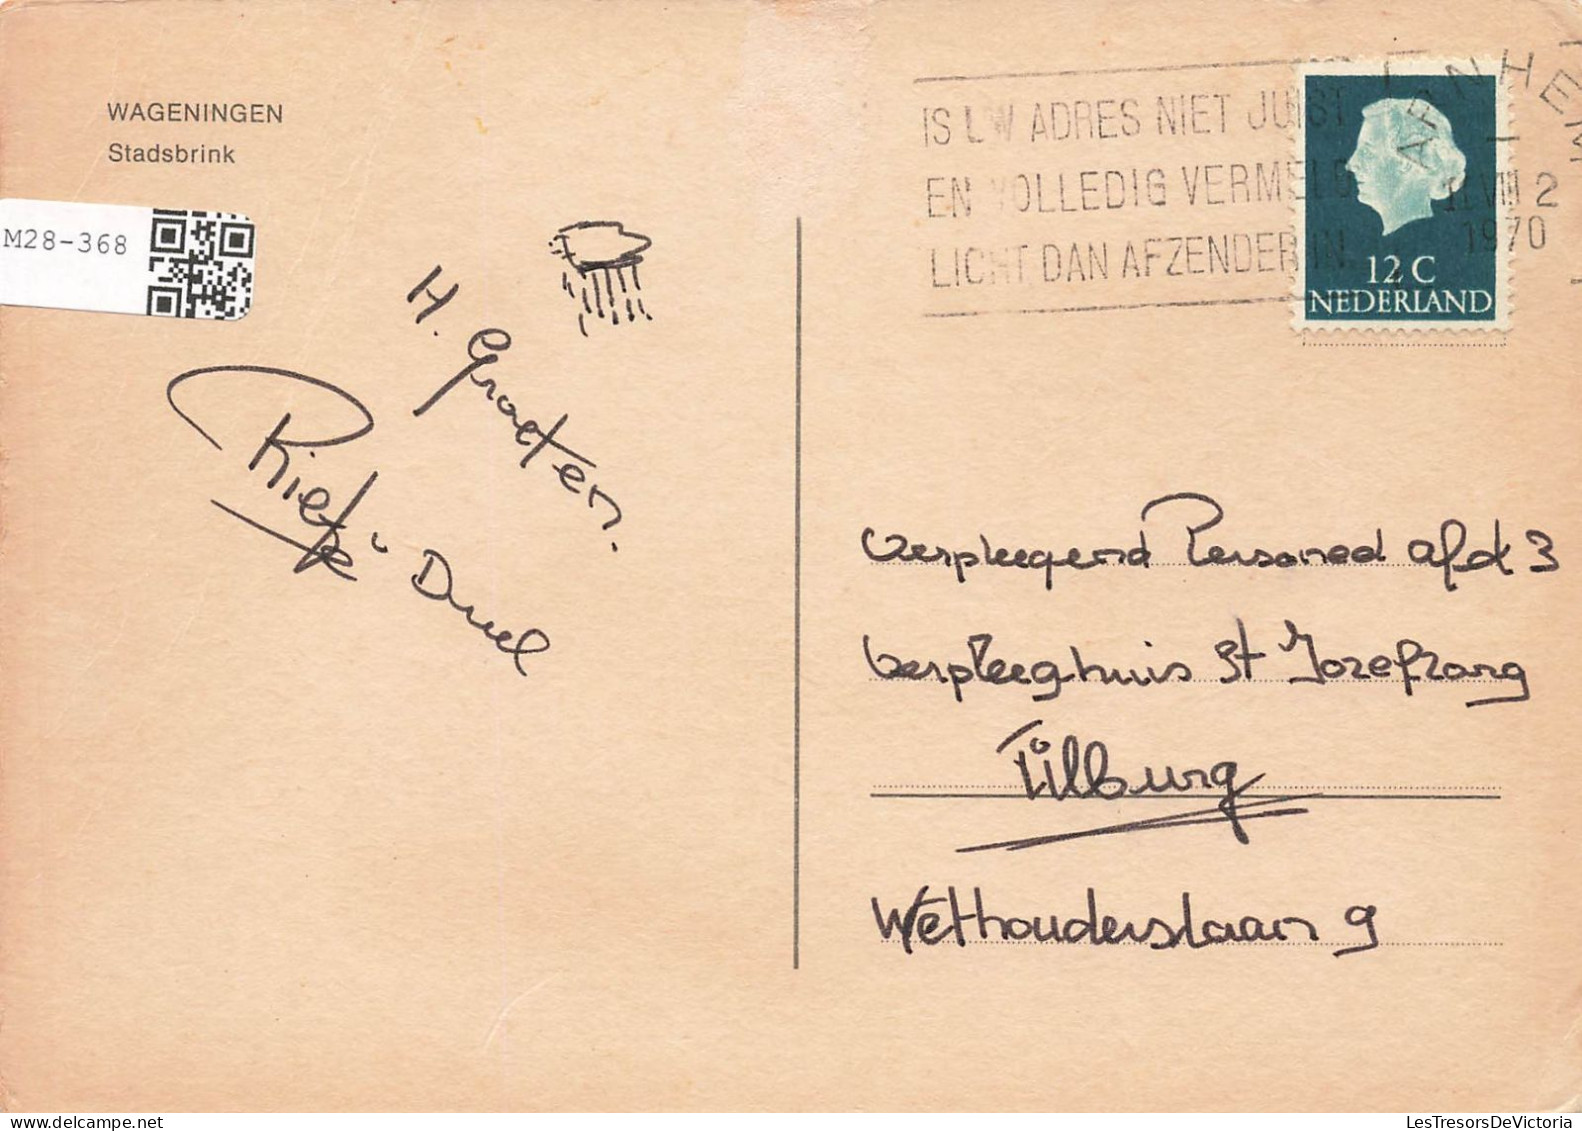 WAGENINGEN
Stadsbrink
M28-368
H. Groeten.
Rietje Duel
IS UW ADRES NIET JUIST
EN VOLLEDIG VERMELD
LICHT DAN AFZENDER IN.
ARNHEM
VIII 2
1970
12 C
NEDERLAND
Verpleegend Personeel afd 3
Verpleeghuis St Jozefzorg
Tilburg
Wethouderslaan 9
LesTresorsDeVictoria